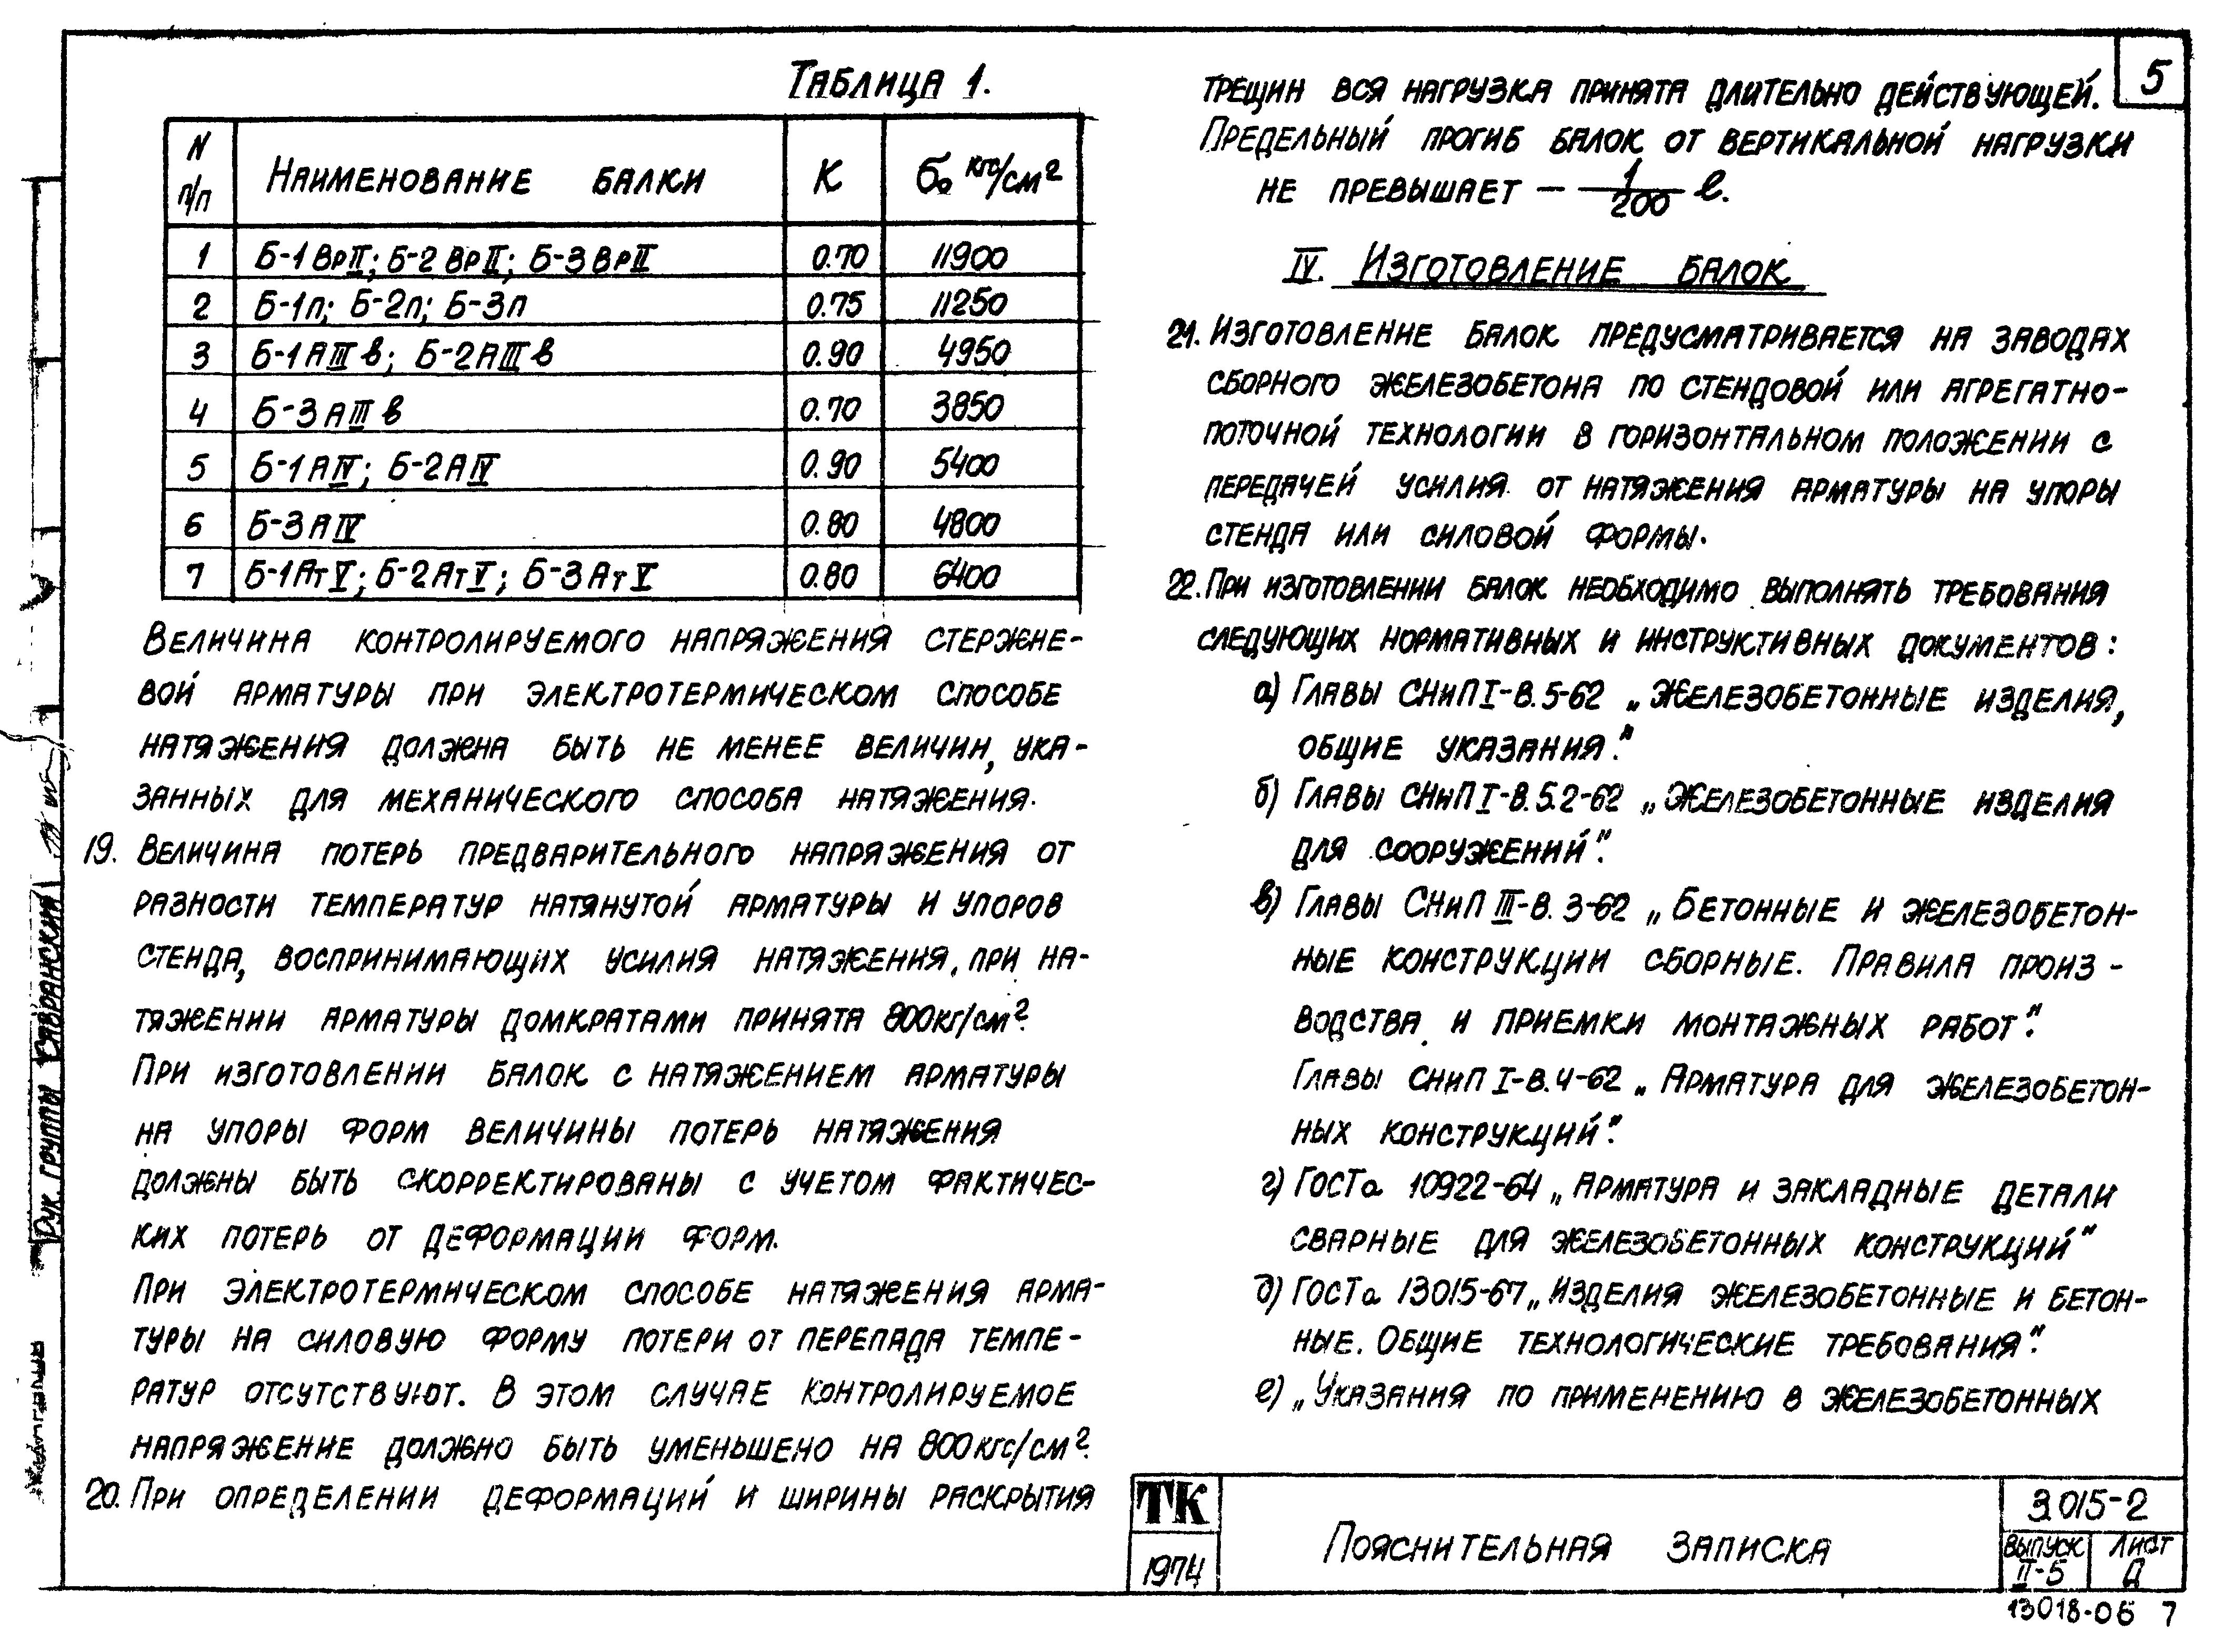 5
Таблица 1.
N п/п | Наименование балки | К | б₀ кгс/см²
1 | Б-1ВрII; Б-2ВрII; Б-3ВрII | 0.70 | 11900
2 | Б-1п; Б-2п; Б-3п | 0.75 | 11250
3 | Б-1АIIIв; Б-2АIIIв | 0.90 | 4950
4 | Б-3АIIIв | 0.70 | 3850
5 | Б-1АIV; Б-2АIV | 0.90 | 5400
6 | Б-3АIV | 0.80 | 4800
7 | Б-1АтV; Б-2АтV; Б-3АтV | 0.80 | 6400
Величина контролируемого напряжения стержне-
вой арматуры при электротермическом способе
натяжения должна быть не менее величин, ука-
занных для механического способа натяжения.
19. Величина потерь предварительного напряжения от
разности температур натянутой арматуры и упоров
стенда, воспринимающих усилия натяжения, при на-
тяжении арматуры домкратами принята 800кг/см².
При изготовлении балок с натяжением арматуры
на упоры форм величины потерь натяжения
должны быть скорректированы с учетом фактичес-
ких потерь от деформации форм.
При электротермическом способе натяжения арма-
туры на силовую форму потери от перепада темпе-
ратур отсутствуют. В этом случае контролируемое
напряжение должно быть уменьшено на 800кгс/см².
20. При определении деформаций и ширины раскрытия
трещин вся нагрузка принята длительно действующей.
Предельный прогиб балок от вертикальной нагрузки
не превышает — 1/200 ℓ.
IV. Изготовление балок
21. Изготовление балок предусматривается на заводах
сборного железобетона по стендовой или агрегатно-
поточной технологии в горизонтальном положении с
передачей усилия от натяжения арматуры на упоры
стенда или силовой формы.
22. При изготовлении балок необходимо выполнять требования
следующих нормативных и инструктивных документов:
а) Главы СНиП I-В.5-62 „Железобетонные изделия,
общие указания".
б) Главы СНиП I-В.5.2-62 „Железобетонные изделия
для сооружений".
в) Главы СНиП III-В.3-62 „Бетонные и железобетон-
ные конструкции сборные. Правила произ-
водства и приемки монтажных работ".
Главы СНиП I-В.4-62 „Арматура для железобетон-
ных конструкций".
г) ГОСТа 10922-64 „Арматура и закладные детали
сварные для железобетонных конструкций"
д) ГОСТа 13015-67 „Изделия железобетонные и бетон-
ные. Общие технологические требования".
е) „Указания по применению в железобетонных
Рук. группы Савранский
ТК
1974
Пояснительная записка
3.015-2
Выпуск II-5
Лист Д
13018-06 7